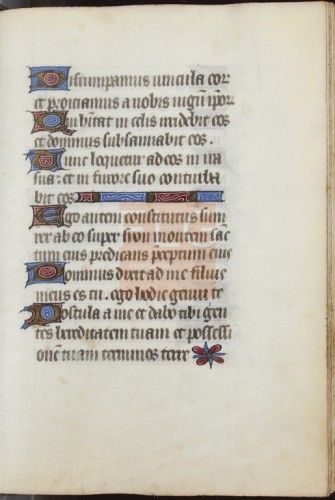 Disrumpamus vincula eor
et proiciamus a nobis iugū ip̄or
Qui hītat in celis irridebit eos
et dominus subsannabit eos.
Tunc loquetur ad eos in ira
sua: et in furore suo conturba
bit eos
Ego autem constitutus sum
rex ab eo super sion montem sāc
tum eius predicans p̄ceptum eius
Dominus dixit ad me filius
meus es tu. ego hodie genui te
Postula a me et dabo tibi gen
tes hereditatem tuam et possessi
onē tuam terminos terre